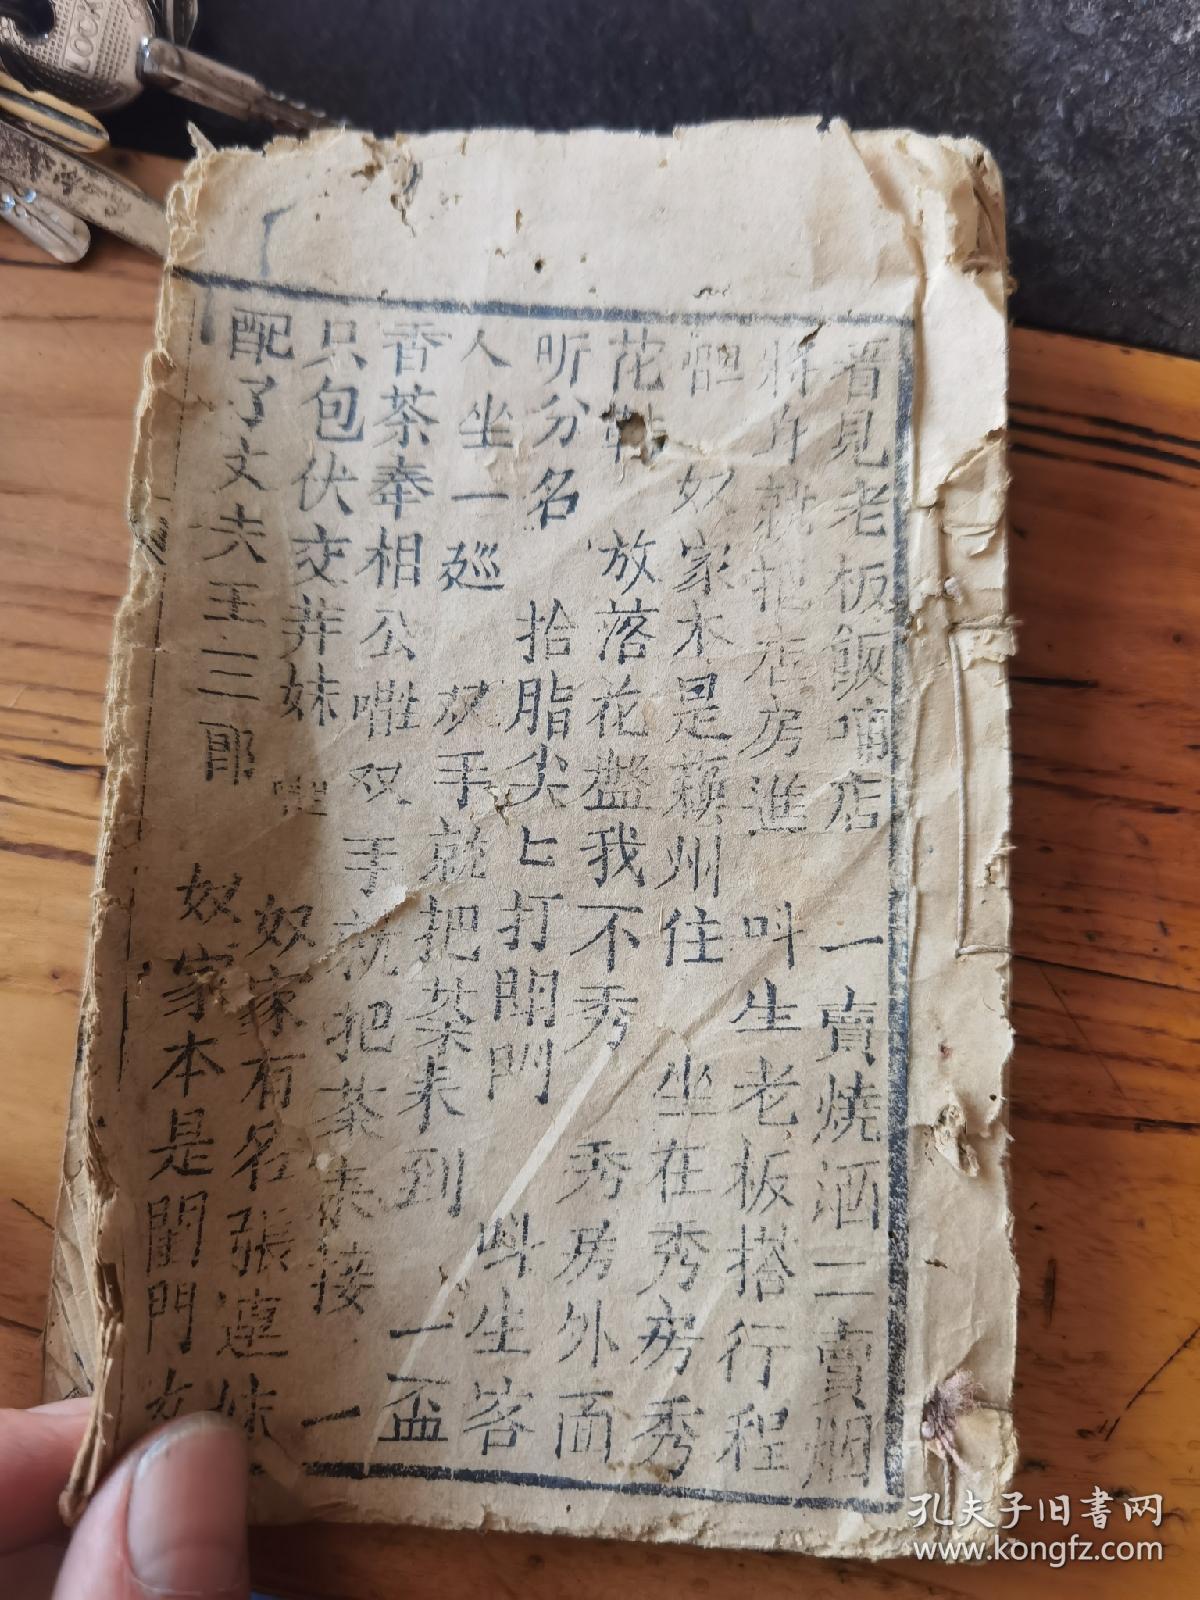 看見老板飯舖店 一賣燒洒二賣烟
將身就把店房進 叫生老板搭行程
奴家本是蘇州住 坐在秀房秀
花鞋 放落花盤我不秀 秀房外面
听分名 抬脂尖匕打開門 叫生客
人坐一廵 双手就把茶來到 一盃
香茶奉相公 双手就把茶來接 一
只包伏交并妹 奴家有名張連妹
配了丈夫王三郎 奴家本是閨門女
孔夫子旧書网
www.kongfz.com
LOCK